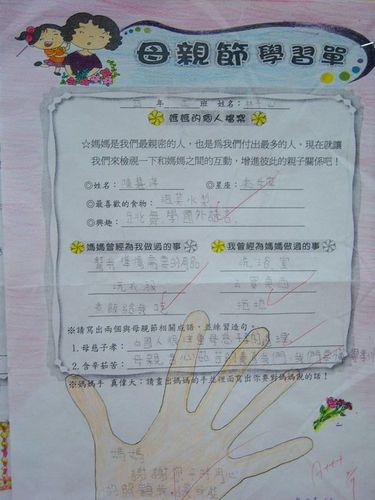 母親節學習單
年 班 姓名：
媽媽的個人檔案
☆媽媽是我們最親密的人，也是為我們付出最多的人，現在就讓
我們來檢視一下和媽媽之間的互動，增進彼此的親子關係吧！
◎姓名： ◎星座：
◎最喜歡的食物： 水梨
◎興趣： 學國外語言
媽媽曾經為我做過的事 我曾經為媽媽做過的事
幫我準備需要的用品 洗浴室
洗衣服 去買東西
煮飯給我吃 拖地
※請寫出兩個與母親節相關成語，並練習造句：
1. 母慈子孝： 國人很注重母慈子孝的道理
2. 含辛茹苦： 母親含心茹苦的養育我們，我們要
※媽媽手 真偉大：請畫出媽媽的手並裡面寫出你要對媽媽說的話！
媽媽
謝謝你
的照顧我
A+++